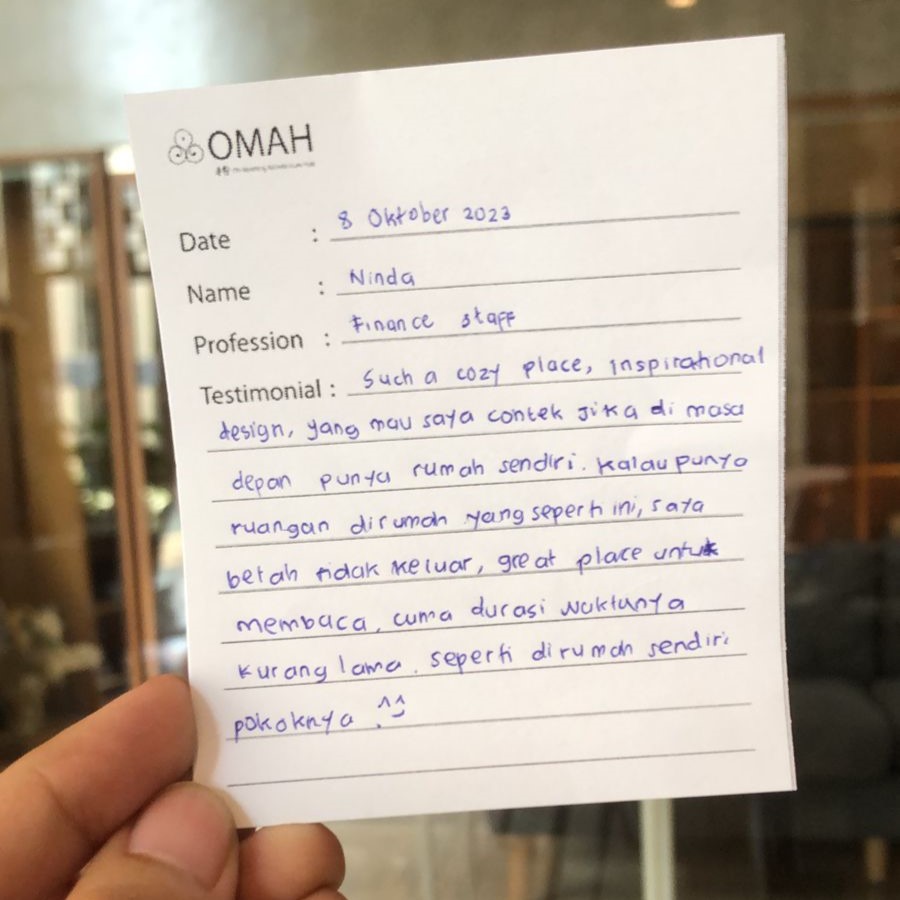 OMAH
Date : 8 Oktober 2023
Name : Ninda
Profession : Finance staff
Testimonial : Such a cozy place, inspirational
design, yang mau saya contek jika di masa
depan punya rumah sendiri. Kalau punya
ruangan dirumah yang seperti ini, saya
betah tidak keluar, great place untuk
membaca, cuma durasi waktunya
kurang lama. seperti dirumah sendiri
pokoknya